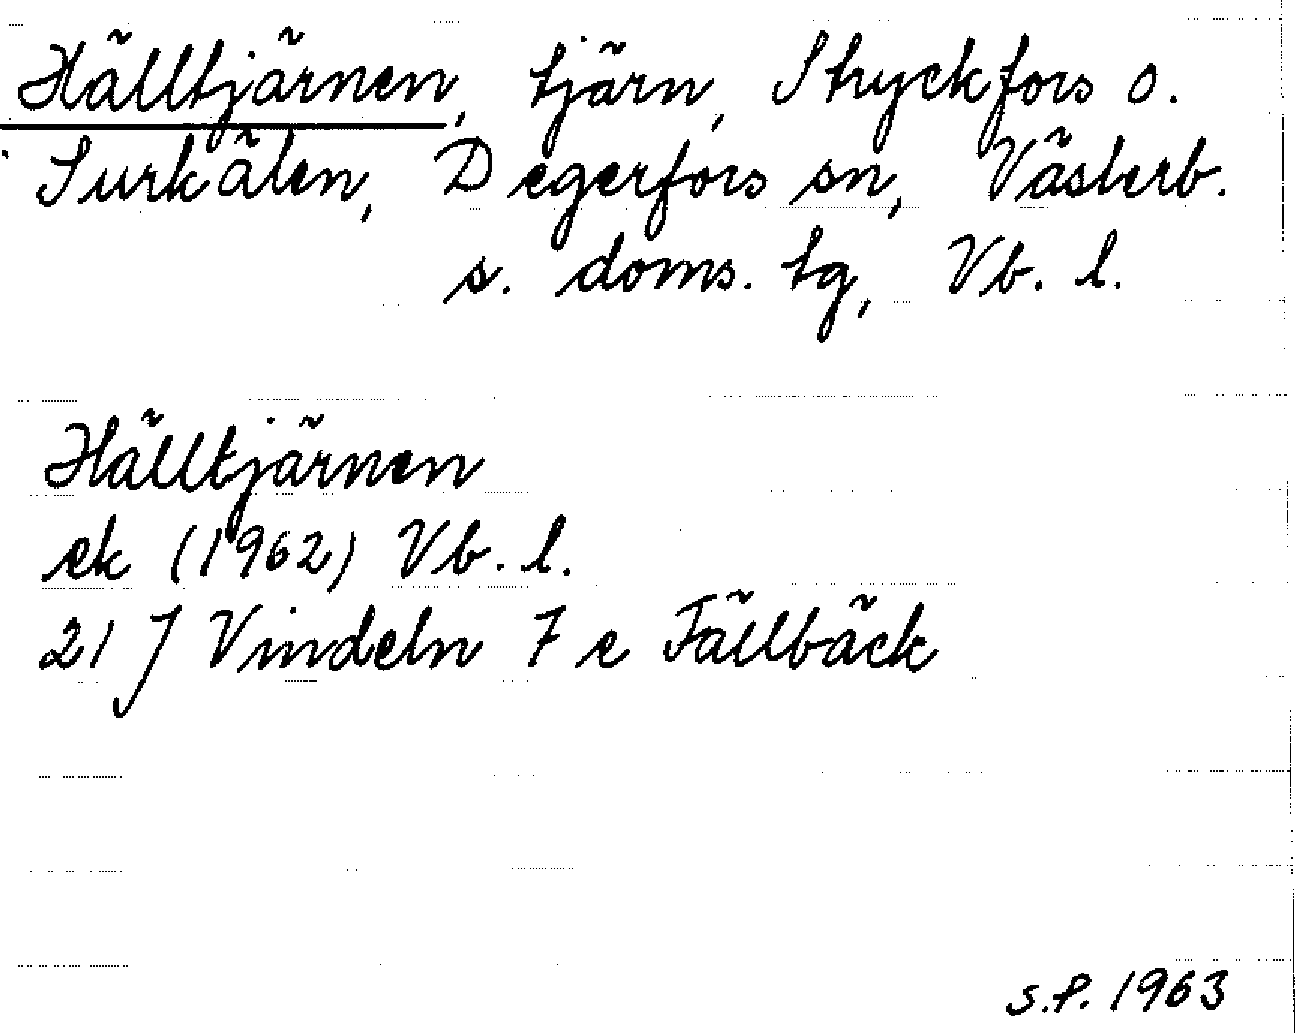 Hälltjärnen, tjärn, Stryckfors o.
Surkålen, Degerfors sn, Västerb.
s. doms. tg, Vb. l.
Hälltjärnen
ek (1962) Vb. l.
21 J Vindeln 7 e Fällbäck
S.P. 1963